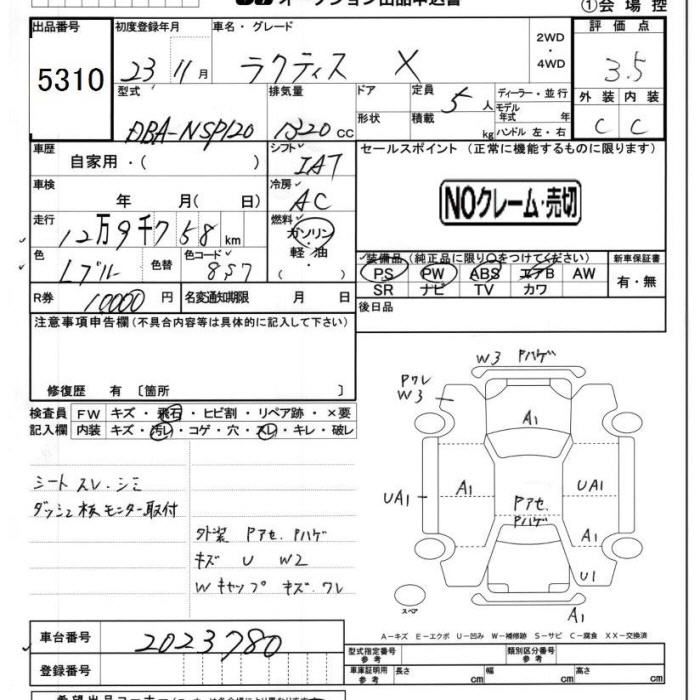 オークション出品申込書
①会場控
出品番号 初度登録年月 車名・グレード 2WD・4WD 評価点
5310 23 11月 ラクティス X 3.5
型式 排気量 ドア 定員 5人 ディーラー・並行 外装 内装
DBA-NSP120 1320 cc 形状 積載 kg モデル年式 年 ハンドル 左・右 C C
車歴 自家用・( ) シフト IAT セールスポイント (正常に機能するものに限ります)
車検 年 月( 日) 冷房 AC
NOクレーム・売切
走行 12万9千7 58 km 燃料 ガソリン・軽油 ( )
色 Lブルー 色替 色コード 8S7
装備品 (純正品に限り○をつけてください) 新車保証書
PS PW ABS エアB AW 有・無
SR ナビ TV カワ
R券 10000円 名変通知期限 月 日 後日品
注意事項申告欄(不具合内容等は具体的に記入して下さい)
修復歴 有 〔箇所 〕
検査員 FW キズ・飛石・ヒビ割・リペア跡・×要
記入欄 内装 キズ・汚レ・コゲ・穴・スレ・キレ・破レ
シート スレ.シミ
ダッシュ板モニター取付
外装 Pアセ. Pハゲ
キズ U W2
Wキャップ キズ.ワレ
W3 Pハゲ
Pワレ
W3
A1
UA1 A1 UA1
Pアセ
Pハゲ
A1
U1
スペア
A1
A-キズ E-エクボ U-凹み W-補修跡 S-サビ C-腐食 XX-交換済
車台番号 2023780
型式指定番号 参考 類別区分番号 参考
登録番号
車庫証明用 参考 長さ cm 幅 cm 高さ cm